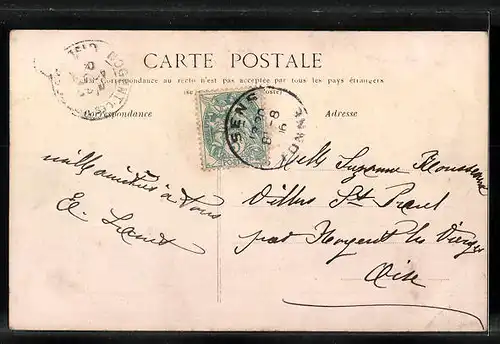 CARTE POSTALE
La Correspondance au recto n'est pas acceptée par tous les pays étrangers
Correspondance
Adresse
SENS
8-8
NOGENT-LES
OISE
mille amitiés à tous
Melle Suzanne
Villers St Paul
par Nogent les Vierges
Oise